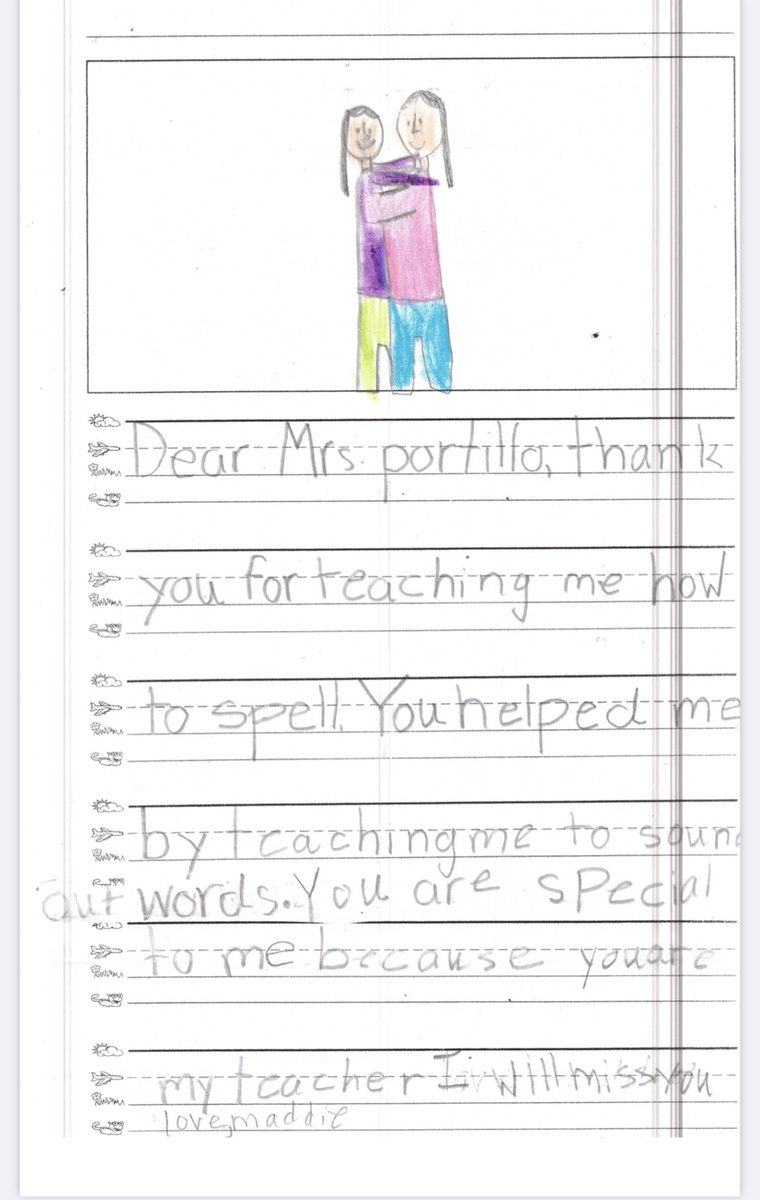 Dear Mrs. portillo, thank
you for teaching me how
to spell. You helped me
by teaching me to sound
out words. You are special
to me because you are
my teacher I will miss you
love, maddie